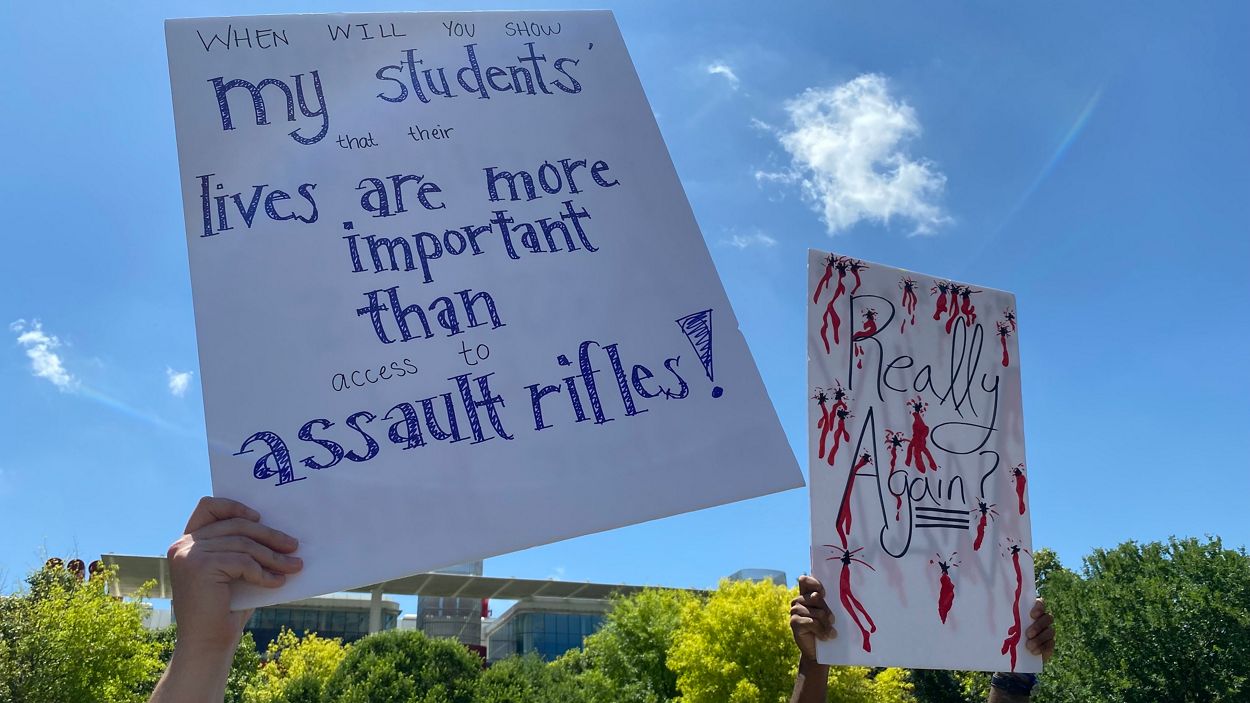 WHEN WILL YOU SHOW
my students'
that their
lives are more
important
than
access to
assault rifles!
Really
Again?